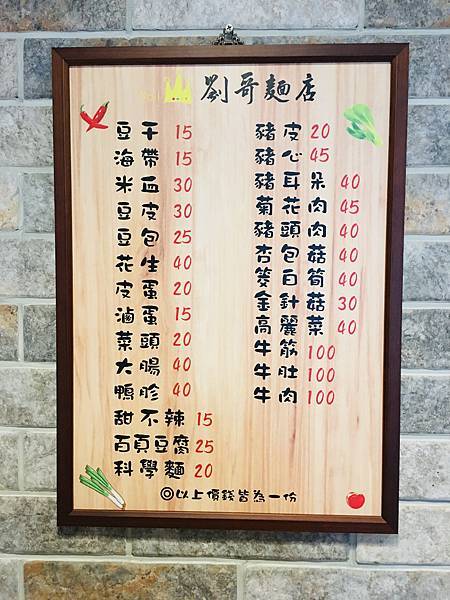 劉哥麵店
豆干 15
海帶 15
米血 30
豆皮 30
豆包 25
花生 40
皮蛋 20
滷蛋 15
菜頭 20
大腸 40
鴨胗 40
甜不辣 15
百頁豆腐 25
科學麵 20
豬皮 20
豬心 45
豬耳朵 40
菊花肉 45
豬頭肉 40
杏包菇 40
茭白筍 40
金針菇 30
高麗菜 40
牛筋 100
牛肚 100
牛肉 100
◎以上價錢皆為一份